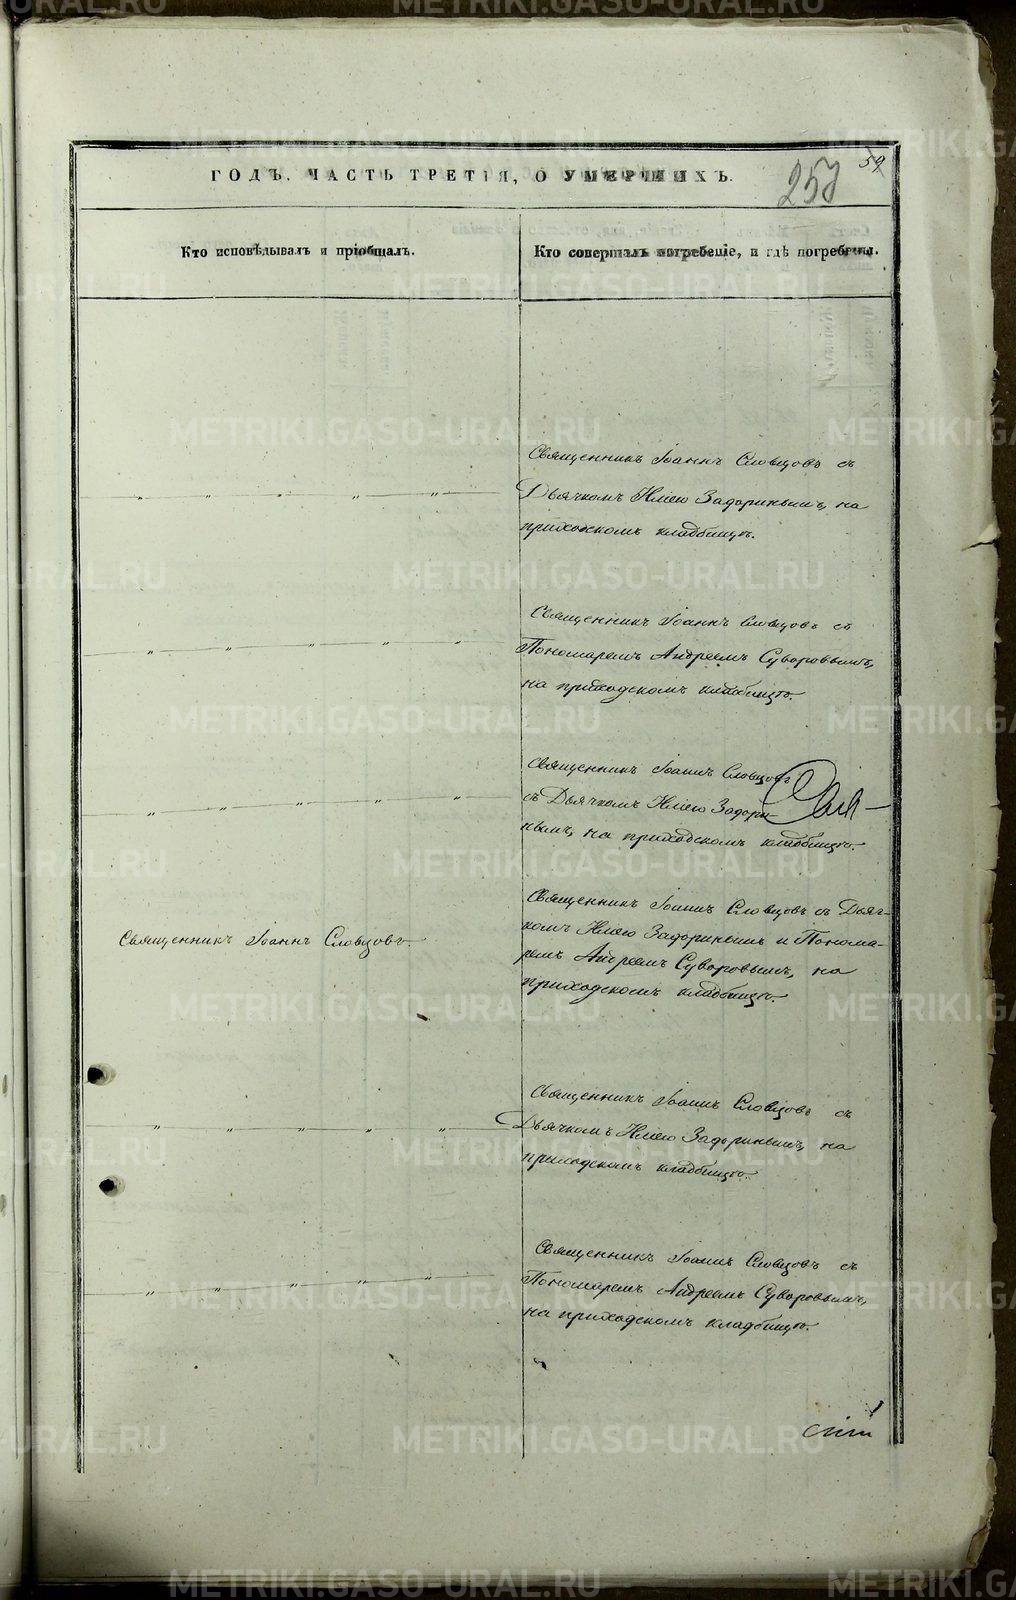 59
257
ГОДЪ. ЧАСТЬ ТРЕТІЯ, О УМЕРШИХЪ.
Кто исповѣдывалъ и пріобщалъ.
Кто совершалъ погребеніе, и гдѣ погребены.
Священникъ Іоаннъ Словцовъ съ
Дьячкомъ Иліею Задоринымъ, на
приходскомъ кладбищѣ.
Священникъ Іоаннъ Словцовъ съ
Пономаремъ Андреемъ Суворовымъ,
на приходскомъ кладбищѣ.
Священникъ Іоаннъ Словцовъ
съ Дьячкомъ Иліею Задори-
нымъ, на приходскомъ кладбищѣ.
Священникъ Іоаннъ Словцовъ.
Священникъ Іоаннъ Словцовъ съ Дьяч-
комъ Иліею Задоринымъ и Понома-
ремъ Андреемъ Суворовымъ, на
приходскомъ кладбищѣ.
Священникъ Іоаннъ Словцовъ съ
Дьячкомъ Иліею Задоринымъ, на
приходскомъ кладбищѣ.
Священникъ Іоаннъ Словцовъ съ
Пономаремъ Андреемъ Суворовымъ,
на приходскомъ кладбищѣ.
METRIKI.GASO-URAL.RU